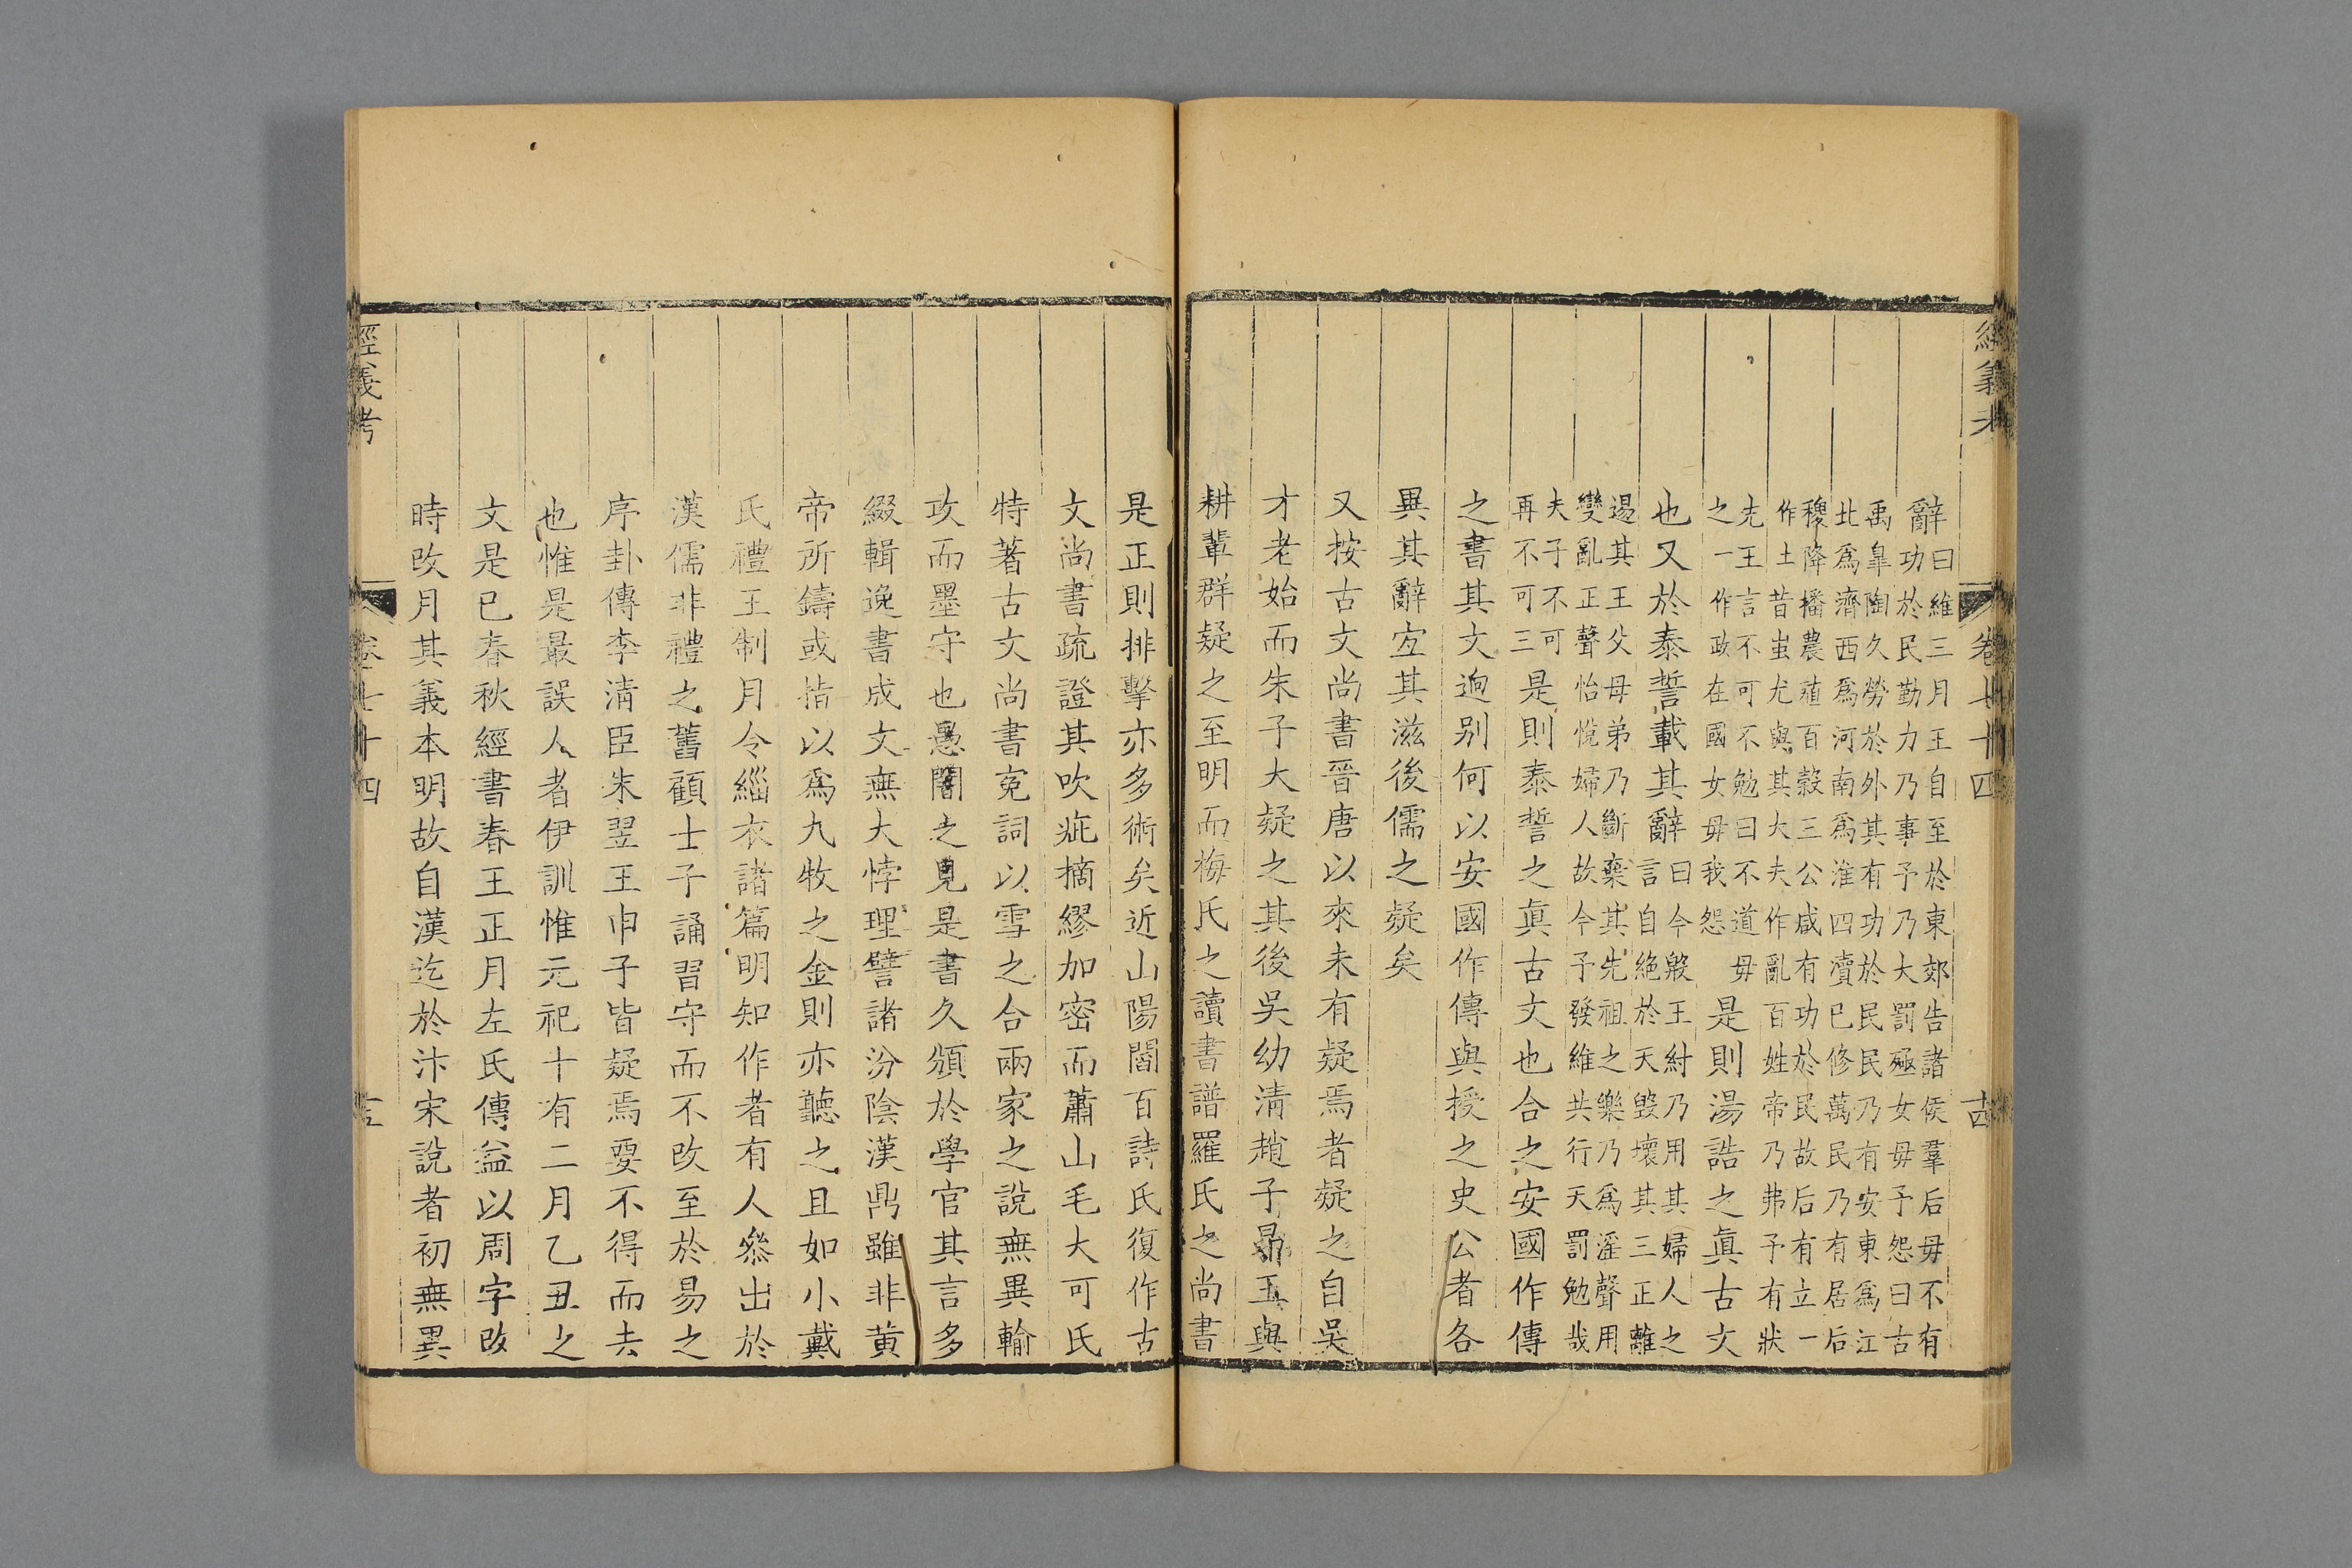 經義考
卷七十四
十四
辭曰維三月王自至於東郊告諸侯羣后毋不有
功於民勤力乃事予乃大罰殛女毋予怨曰古
禹皐陶久勞於外其有功於民民乃有安東爲江
北爲濟西爲河南爲淮四瀆已修萬民乃有居后
稷降播農殖百穀三公咸有功於民故后有立一
作土昔蚩尤與其大夫作亂百姓帝乃弗予有狀
先王言不可不勉曰不道毋
之一作政在國女毋我怨
是則湯誥之眞古文
也又於泰誓載其辭
曰今殷王紂乃用其婦人之
言自絕於天毀壞其三正離
逷其王父母弟乃斷棄其先祖之樂乃爲淫聲用
變亂正聲怡悅婦人故今予發維共行天罰勉哉
夫子不可
再不可三
是則泰誓之眞古文也合之安國作傳
之書其文逈别何以安國作傳與授之史公者各
異其辭宐其滋後儒之疑矣
又按古文尚書晉唐以來未有疑焉者疑之自吳
才老始而朱子大疑之其後吳幼清趙子昻王與
耕輩群疑之至明而梅氏之讀書譜羅氏之尚書
是正則排擊亦多術矣近山陽閻百詩氏復作古
文尚書疏證其吹疵摘繆加密而蕭山毛大可氏
特著古文尚書寃詞以雪之合兩家之說無異輸
攻而墨守也愚闇之見是書久頒於學官其言多
綴輯逸書成文無大悖理譬諸汾陰漢鼎雖非黄
帝所鑄或指以爲九牧之金則亦聽之且如小戴
氏禮王制月令緇衣諸篇明知作者有人叅出於
漢儒非禮之舊顧士子誦習守而不改至於易之
序卦傳李清臣朱翌王申子皆疑焉要不得而去
也惟是最誤人者伊訓惟元祀十有二月乙丑之
文是已春秋經書春王正月左氏傳益以周字改
時改月其義本明故自漢迄於汴宋說者初無異
經義考
卷七十四